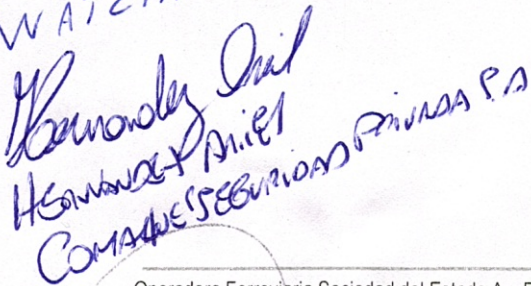 Hernandez Ariel
HERNANDEZ ARIEL
SEGURIDAD PRIVADA S.A
Operadora Ferroviaria Sociedad del Estado